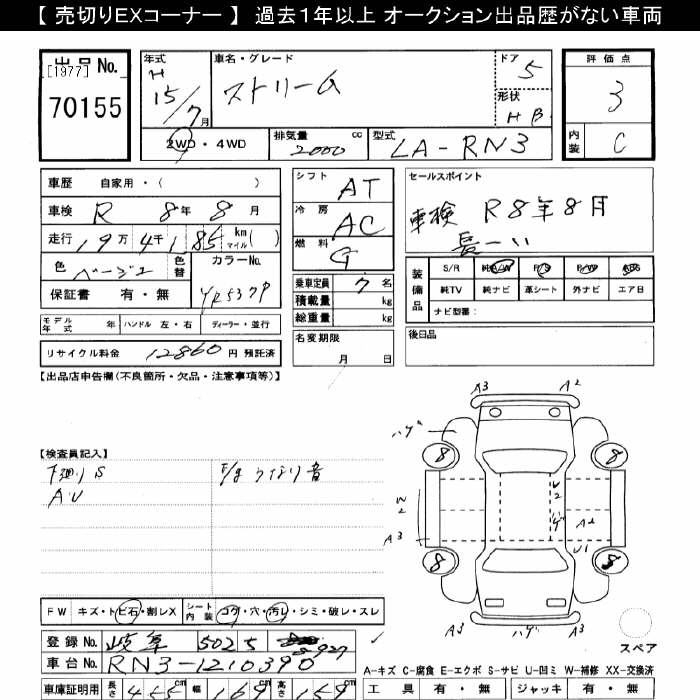 【 売切りEXコーナー 】 過去1年以上 オークション出品歴がない車両
出品No.
[1977]
70155
年式
H
15/7月
車名・グレード
ストリーム
ドア
5
形状
HB
評価点
3
内装
C
2WD・4WD
排気量
2000 cc
型式
LA-RN3
車歴 自家用・( )
車検 R 8年 8月
走行 19万 4千1 85 km マイル( )
色 ベージュ 色替
カラーNo.
YR537P
保証書 有・無
モデル年式 年 ハンドル 左・右 ディーラー・並行
リサイクル料金 12860 円 預託済
シフト AT
冷房 AC
燃料 G
乗車定員 7 名
積載量 kg
総重量 kg
名変期限
月 日
セールスポイント
車検 R8年8月
長ーい
装備品
S/R 純A/W P/S P/W ABS
純TV 純ナビ 革シート 外ナビ エア日
ナビ型番:
後日品
【出品店申告欄(不良箇所・欠品・注意事項等)】
【検査員記入】
下廻りS
F/ま うなり音
AU
A3 A2
ハゲ
8 8
W2
A3
A2
U1
8 8
A3 ハゲ A3
スペア
FW キズ・トビ石・割レX シート内装 コゲ・穴・汚レ・シミ・破レ・スレ
登録No. 岐阜 502 5 8927
車台No. RN3-1210390
車庫証明用 長さ 455 cm 幅 169 cm 高さ 159 cm
A-キズ C-腐食 E-エクボ S-サビ U-凹ミ W-補修 XX-交換済
工具 有・無 ジャッキ 有・無